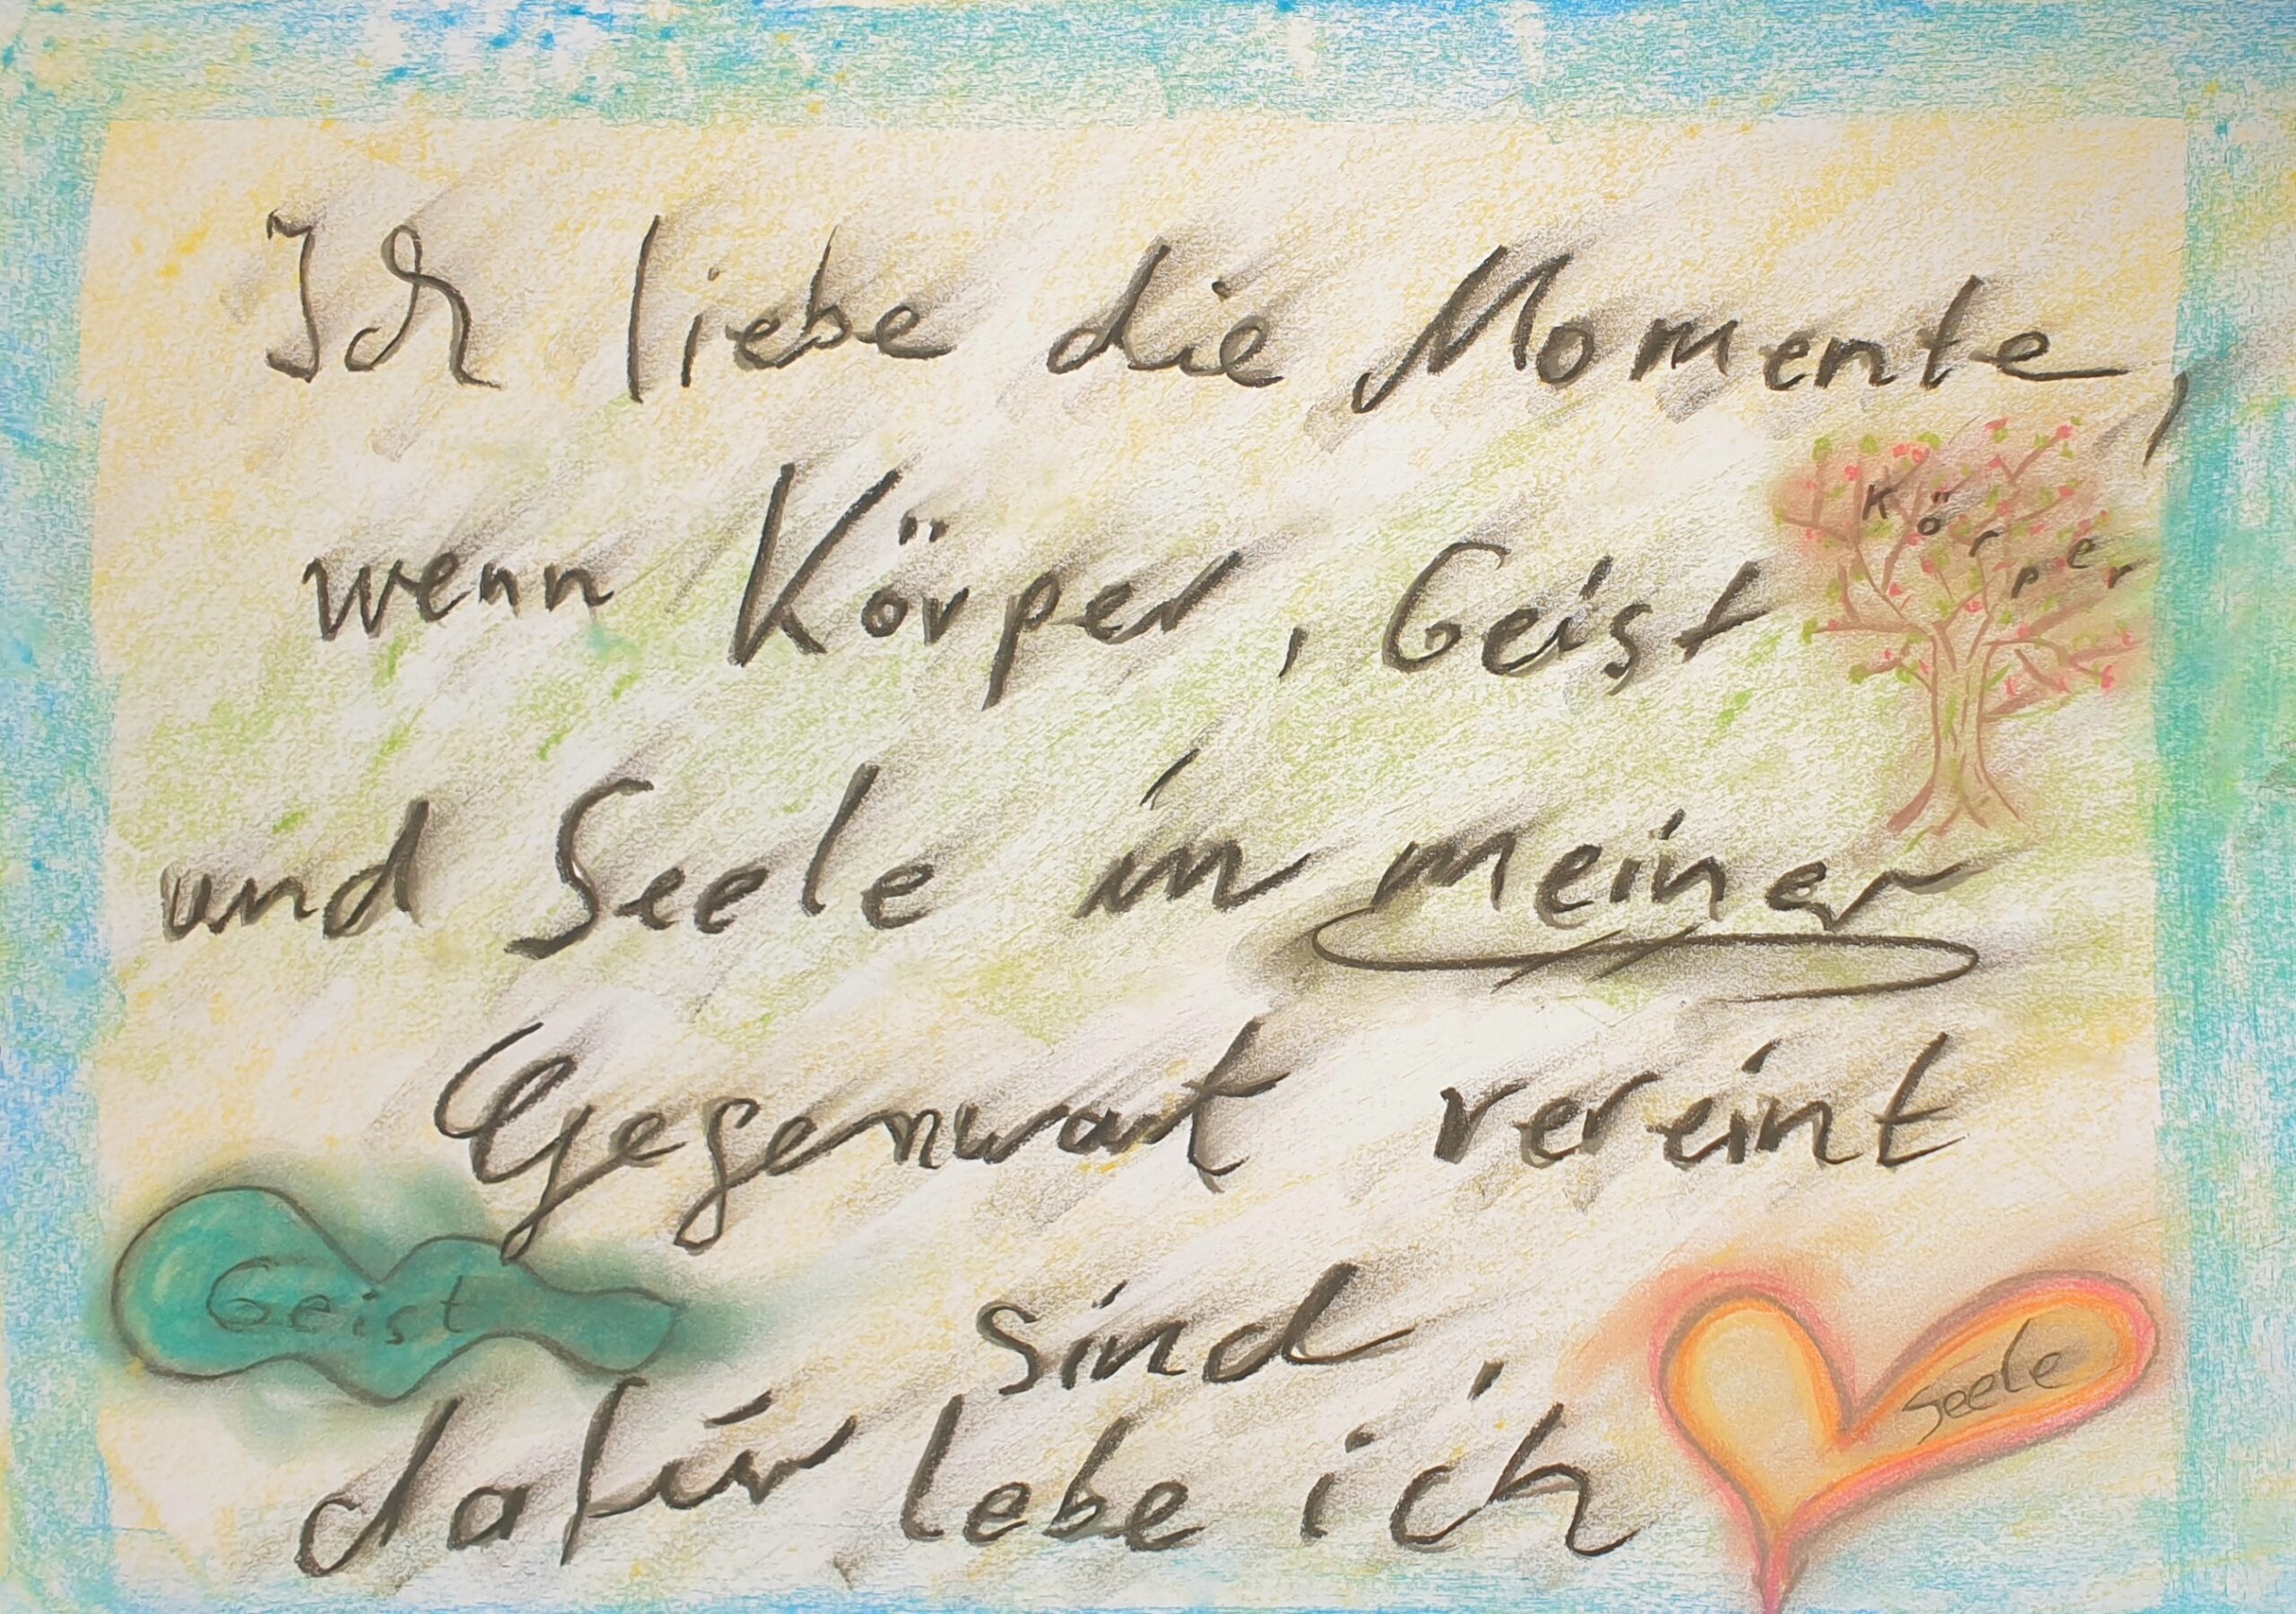 Ich liebe die Momente,
wenn Körper, Geist
Körper
und Seele in meiner
Gegenwart vereint
Geist
sind,
Seele
dafür lebe ich